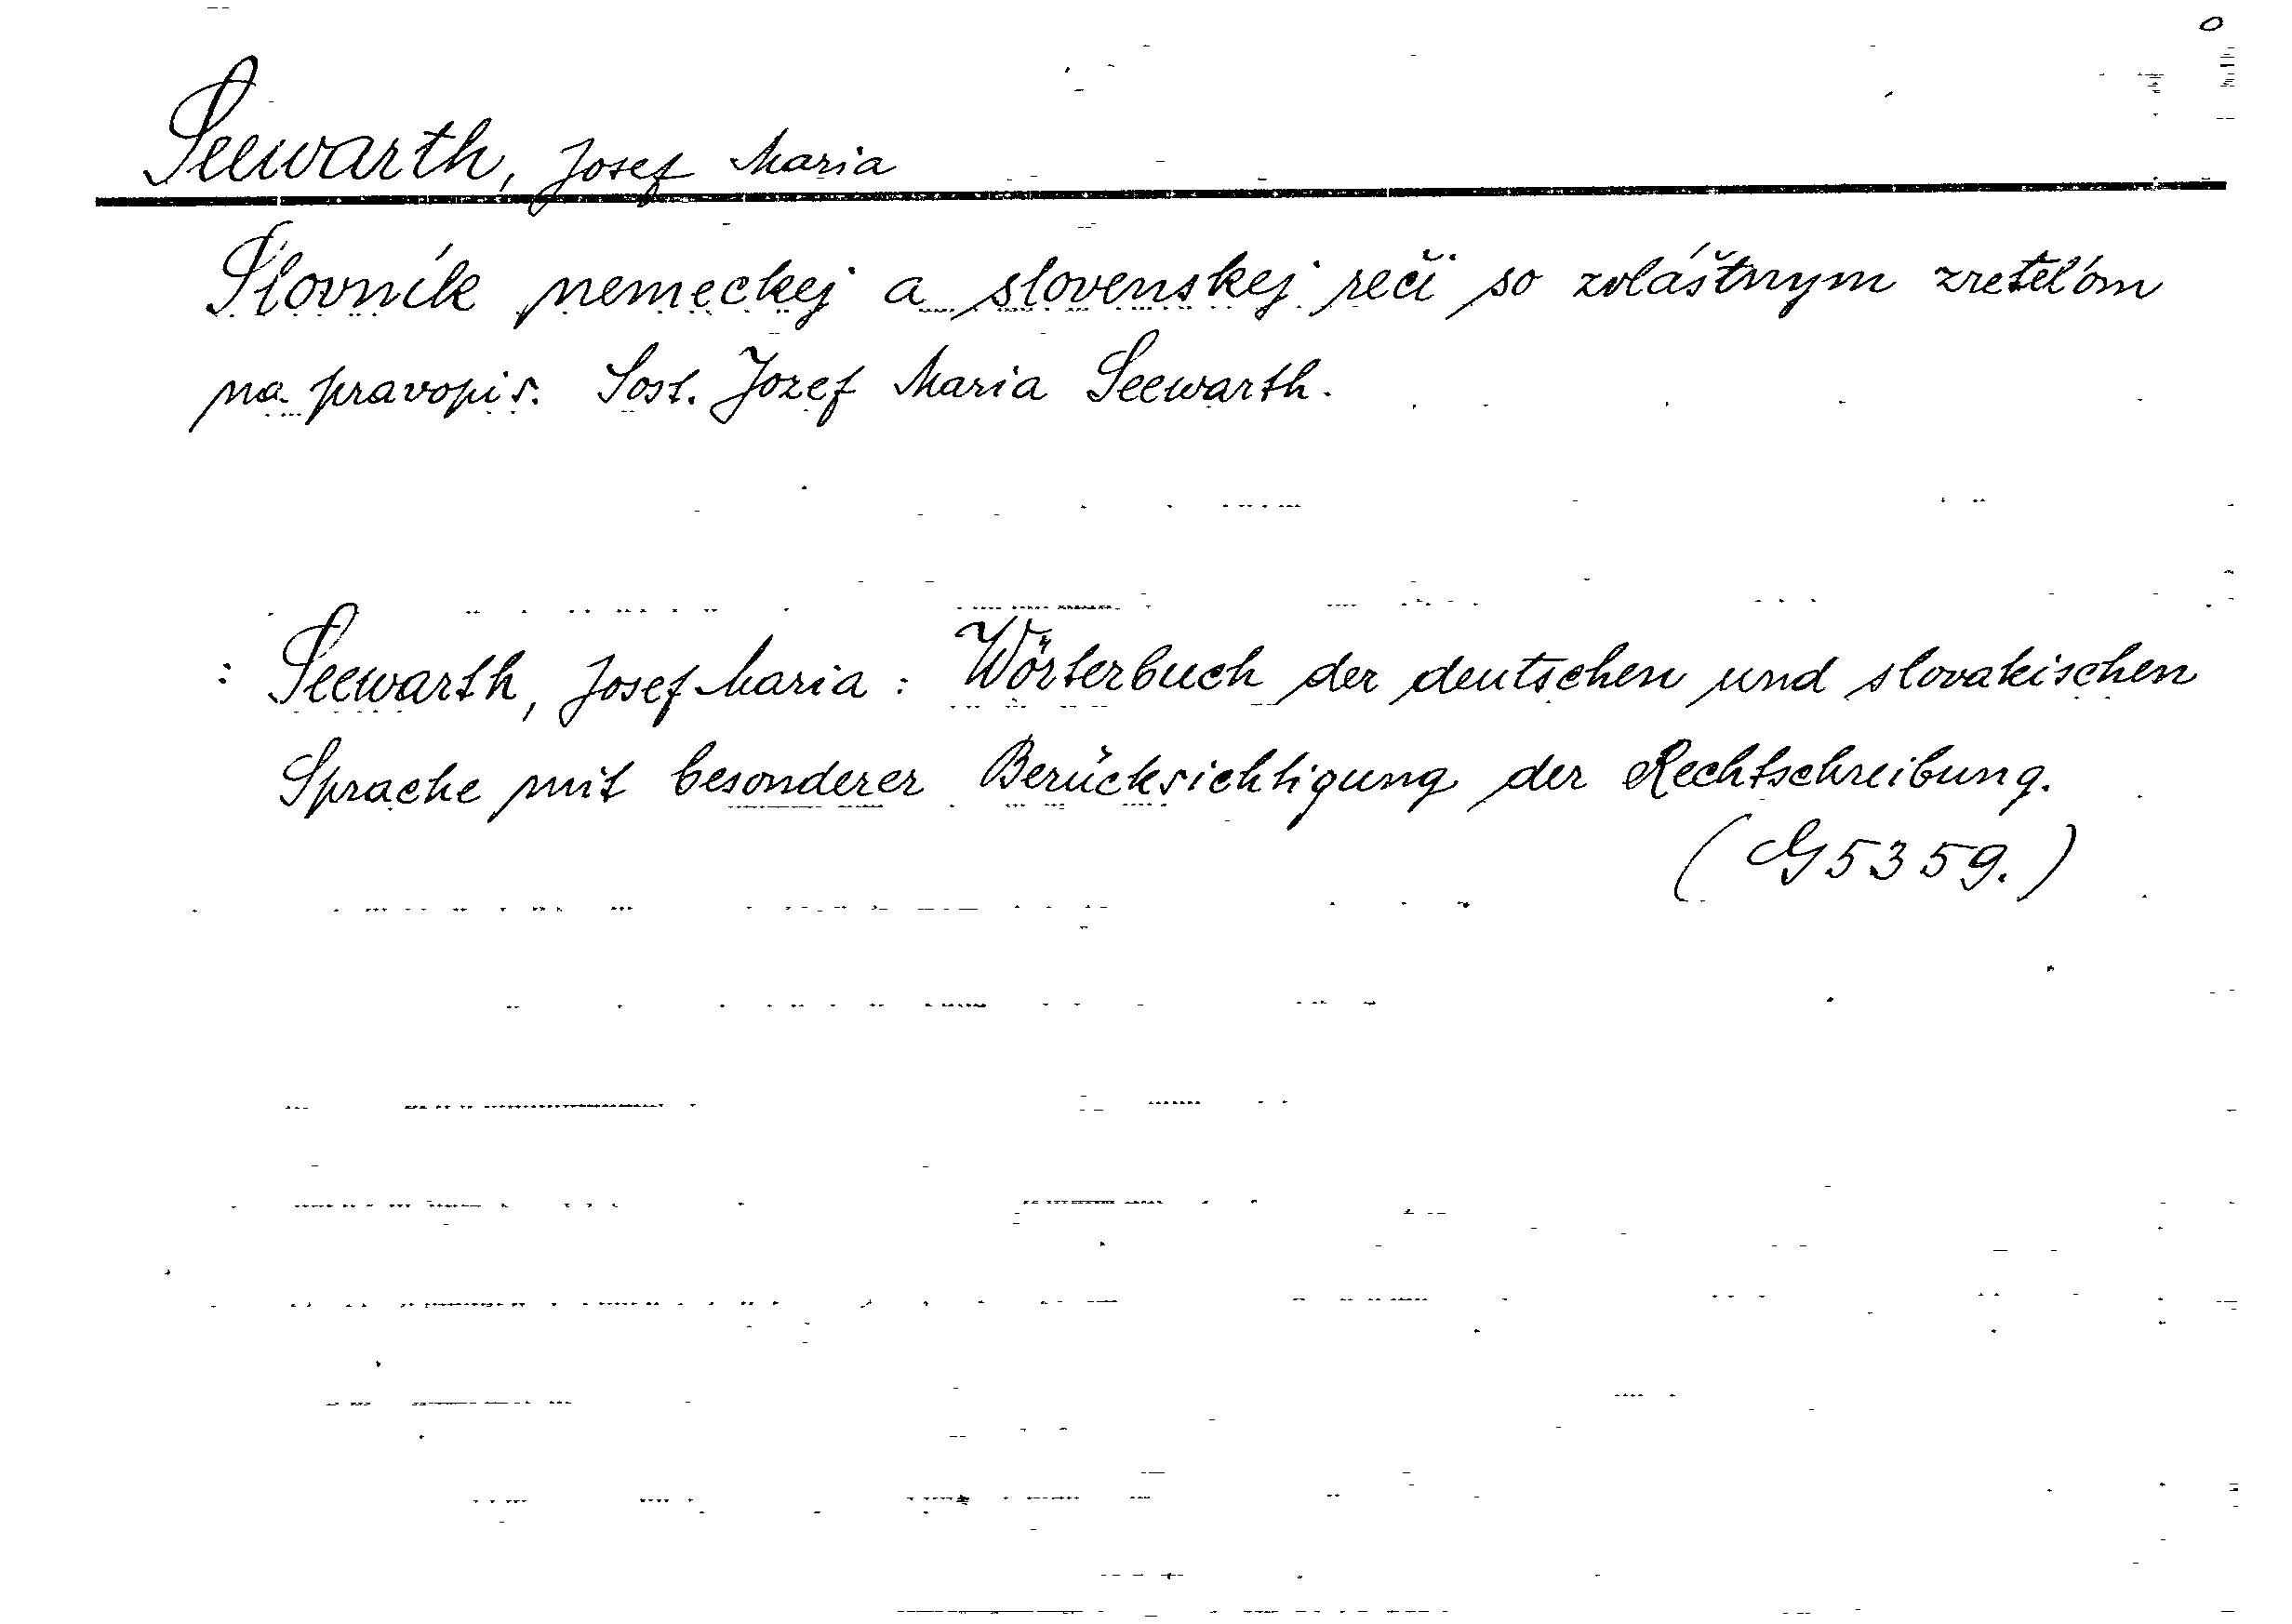 Seewarth, Josef Maria
Slovník nemeckej a slovenskej reči so zvláštnym zreteľom
na pravopis. Sost. Jozef Maria Seewarth.
: Seewarth, Josef Maria: Wörterbuch der deutschen und slovakischen
Sprache mit besonderer Berücksichtigung der Rechtschreibung.
(G 5359.)